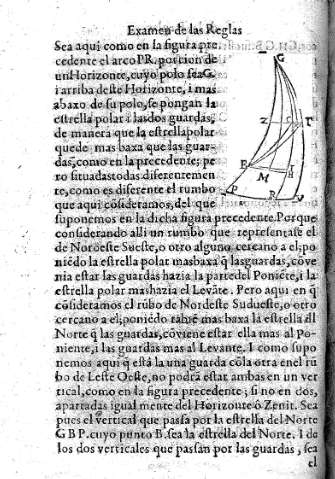 Examen de las Reglas
Sea aqui como en la figura pre
cedente el arco PR. porcion de
un Horizonte, cuyo polo sea G.
i arriba deste Horizonte, i mas
abaxo de su polo, se pongan la
estrella polar i las dos guardas,
de manera que la estrella polar
quede mas baxa que las guar-
das, como en la precedente; pe
ro situadas todas diferentemen
te, como es diferente el rumbo
que aqui cõsideramos, del que
suponemos en la dicha figura precedente. Porque
considerando alli un rumbo que representase el
de Noroeste Sueste, o otro alguno cercano a el; po
niẽdo la estrella polar mas baxa q̃ las guardas, cõve
nia estar las guardas hazia la parte del Poniẽte, i la
estrella polar mas hazia el Levãte. Pero aqui en q̃
cõsideramos el rũbo de Nordeste Sudueste, o otro
cercano a el; poniẽdo tãbiẽ mas baxa la estrella dl
Norte q̃ las guardas, cõviene estar ella mas al Po-
niente, i las guardas mas al Levante. I como supo
nemos aqui q̃ está la una guarda cõ la otra en el rũ
bo de Leste Oeste, no podrá estar ambas en un ver
tical, como en la figura precedente; si no en dos,
apartadas igualmente del Horizonte ó Zenit. Sea
pues el vertical que pasa por la estrella del Norte
G B P. cuyo punto B. sea la estrella del Norte. I de
los dos verticales que pasan por las guardas, sea
el
G
Z
T
E
H
M
P
R